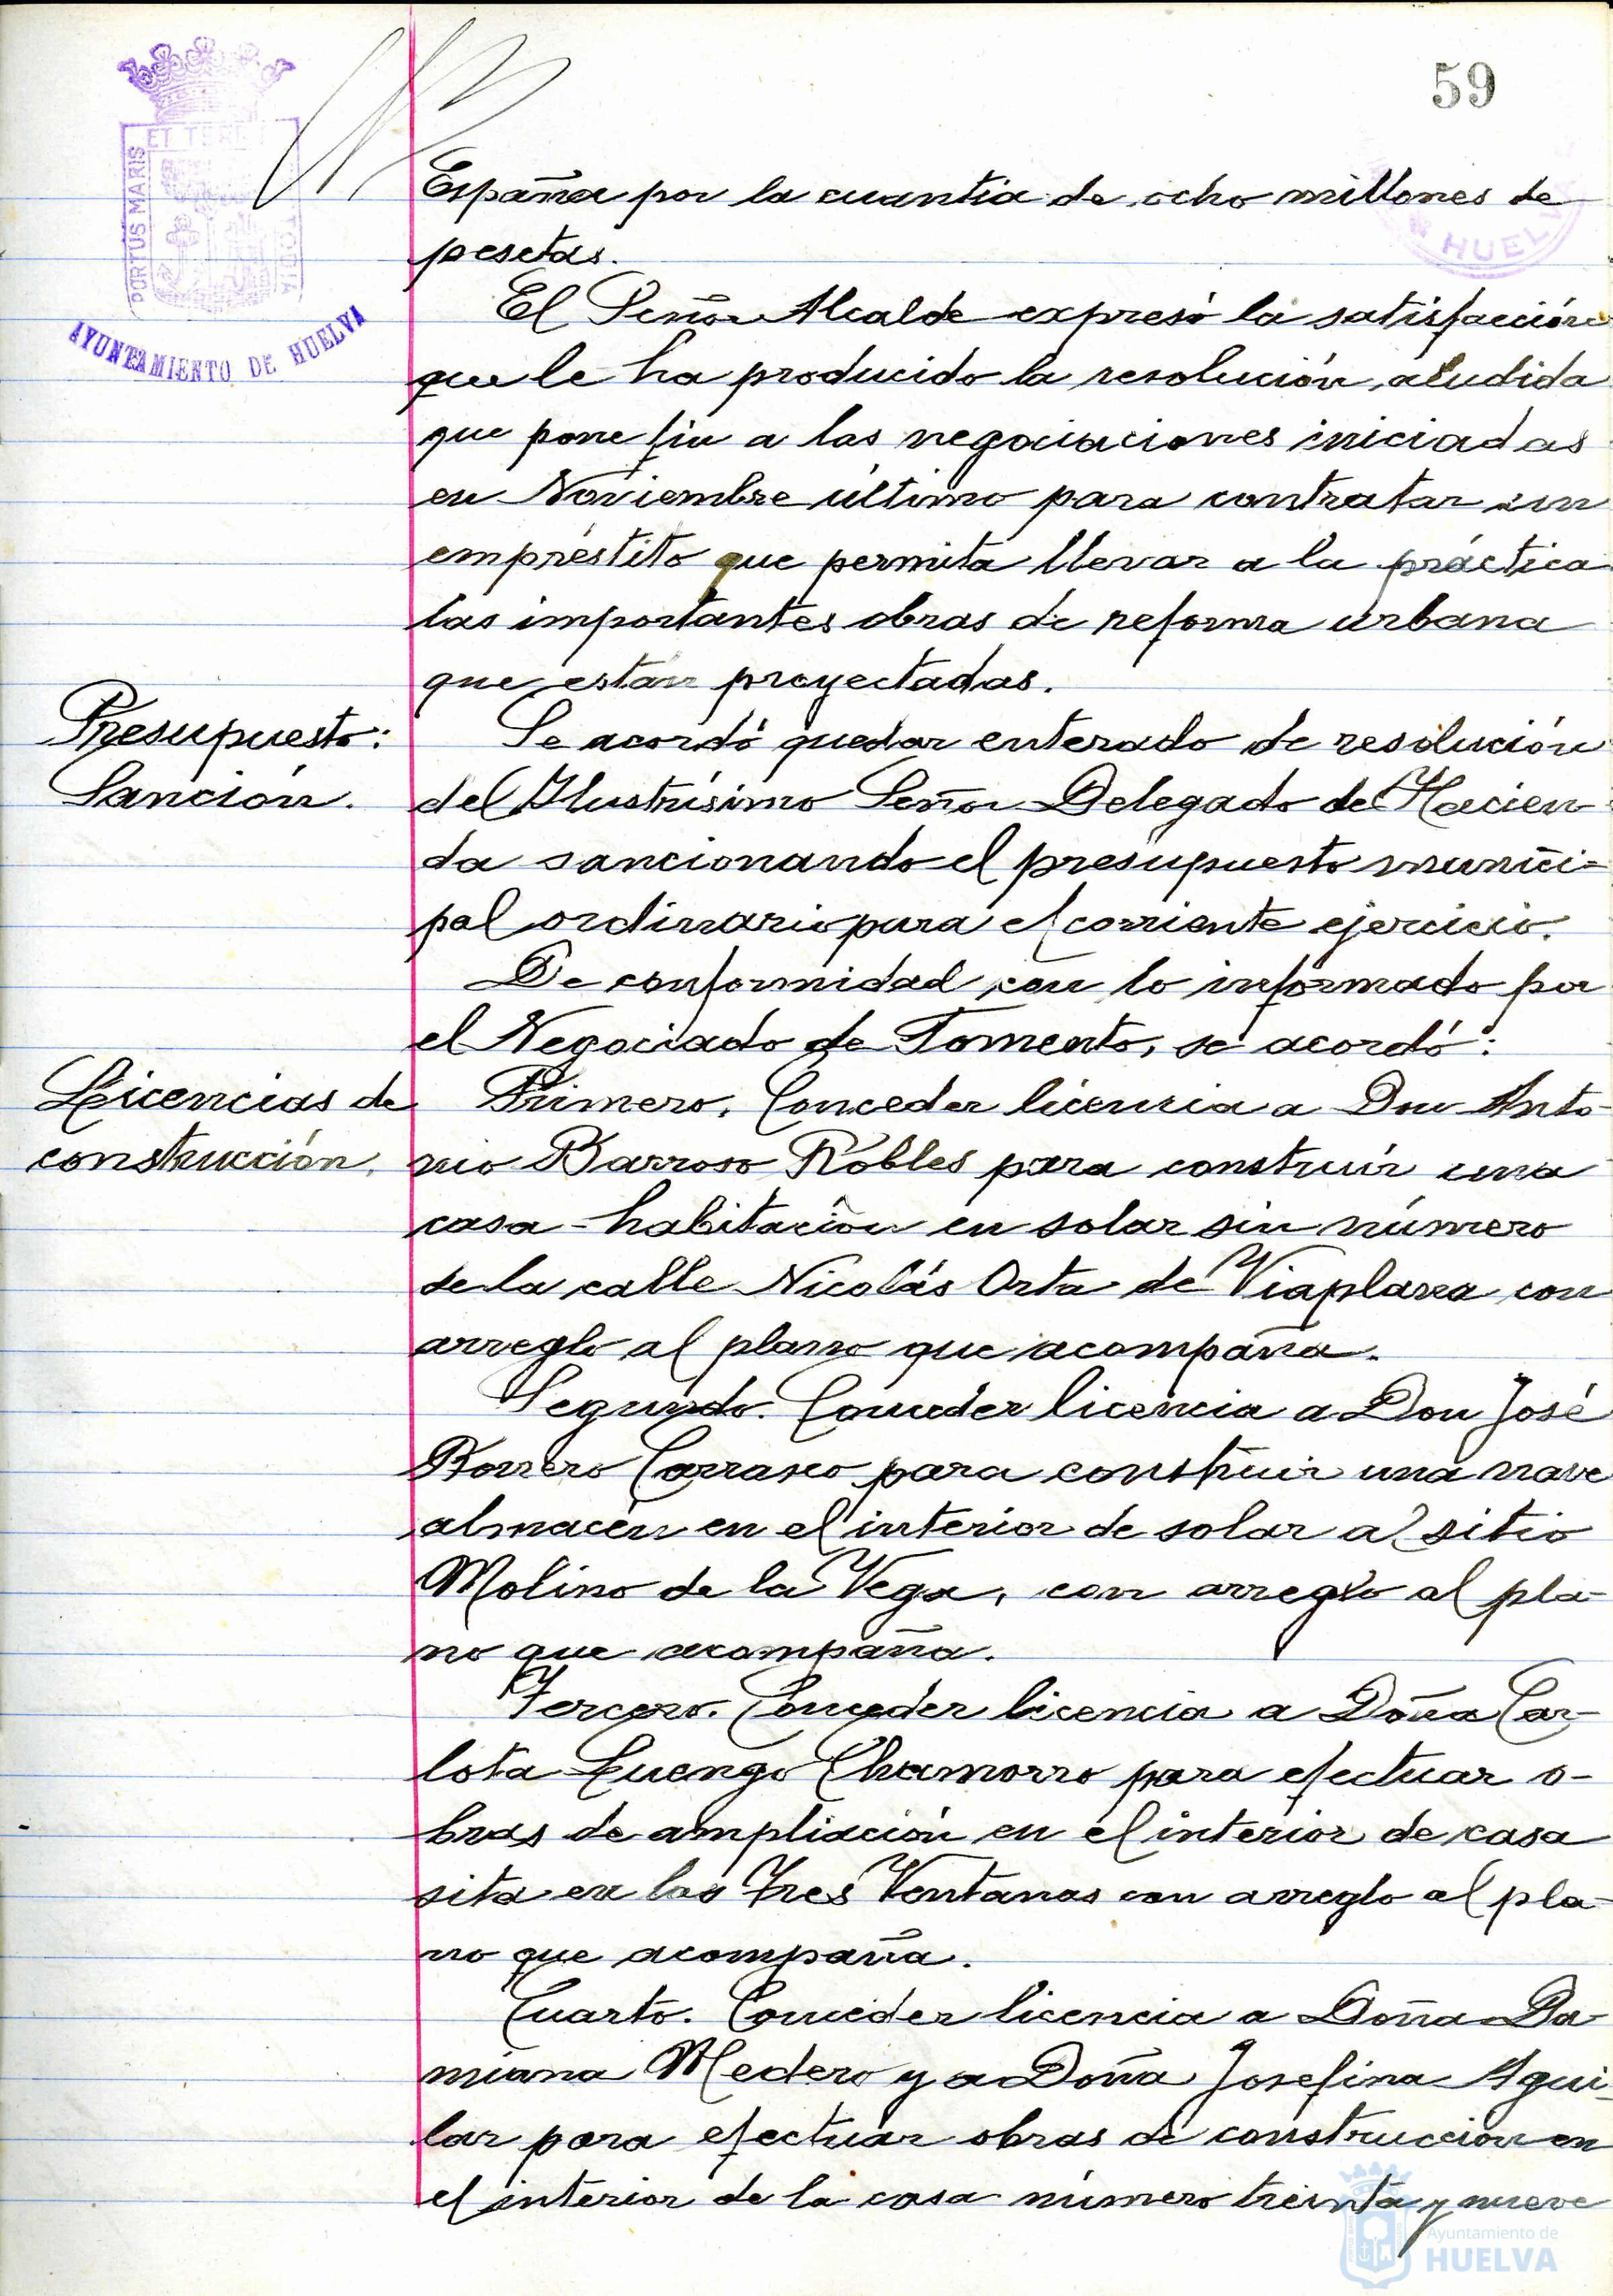 59
ET TERE
PORTUS MARIS
CUSTODIA
AYUNTAMIENTO DE HUELVA
HUELV
España por la cuantía de ocho millones de
pesetas.
El Señor Alcalde expresó la satisfacción
que le ha producido la resolución aludida
que pone fin a las negociaciones iniciadas
en Noviembre último para contratar un
empréstito que permita llevar a la práctica
las importantes obras de reforma urbana
que están proyectadas.
Presupuesto:
Sanción.
Se acordó quedar enterado de resolución
del Ilustrísimo Señor Delegado de Hacien
da sancionando el presupuesto munici-
pal ordinario para el corriente ejercicio.
De conformidad con lo informado por
el Negociado de Fomento, se acordó:
Licencias de
construcción.
Primero. Conceder licencia a Don Anto-
nio Barroso Robles para construir una
casa-habitación en solar sin número
de la calle Nicolás Orta de Viaplana con
arreglo al plano que acompaña.
Segundo. Conceder licencia a Don José
Borrero Carrasco para construir una nave
almacén en el interior de solar al sitio
Molino de la Vega, con arreglo al pla-
no que acompaña.
Tercero. Conceder licencia a Doña Car-
lota Luengo Chamorro para efectuar o-
bras de ampliación en el interior de casa
sita en las Tres Ventanas con arreglo al pla-
no que acompaña.
Cuarto. Conceder licencia a Doña Da-
miana Medero y a Doña Josefina Agui-
lar para efectuar obras de construcción en
el interior de la casa número treinta y nueve
Ayuntamiento de
HUELVA